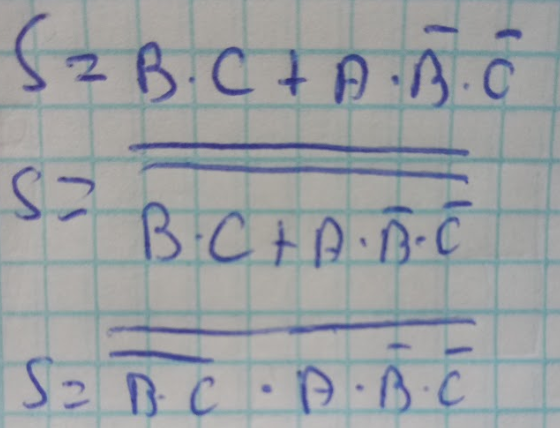 S = B·C + A·B̅·C̅
S = \overline{\overline{B·C + A·\overline{B}·\overline{C}}}
S = \overline{\overline{B·C} · A·\overline{B}·\overline{C}}